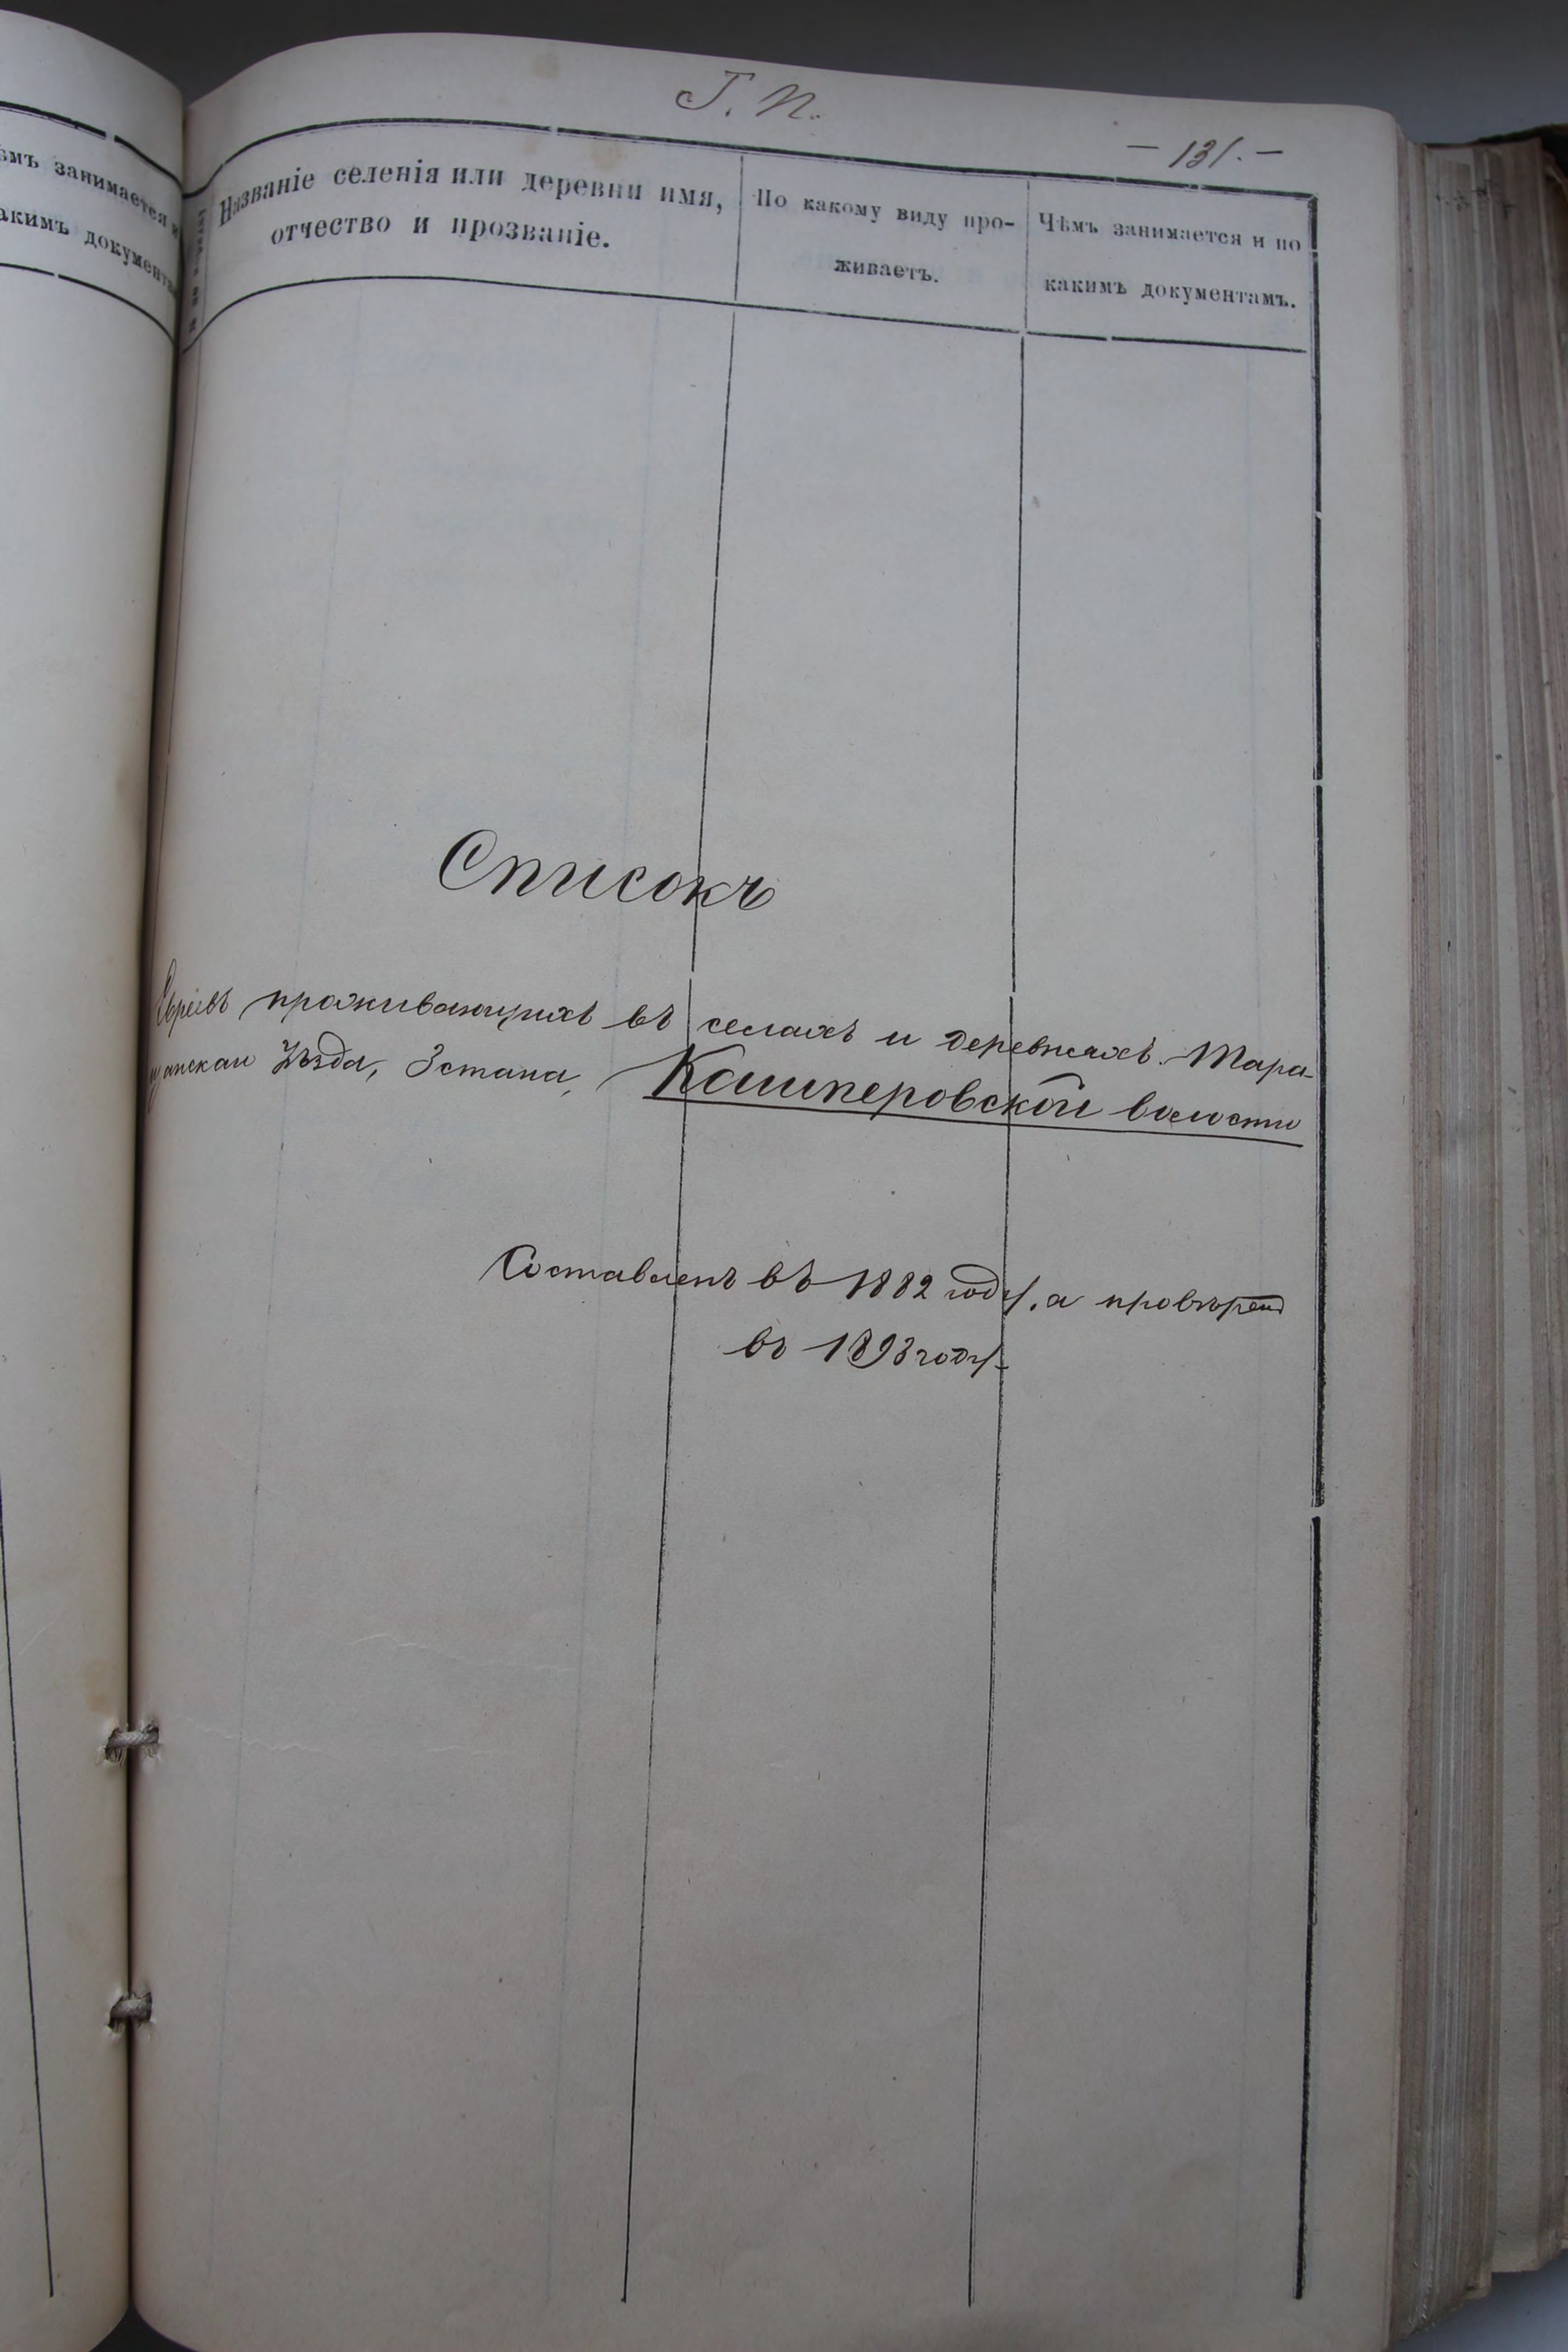 ѣмъ занимается и
акимъ документа
Т. П.
— 131. —
Названіе селенія или деревни имя,
отчество и прозваніе.
По какому виду про-
живаетъ.
Чѣмъ занимается и по
какимъ документамъ.
Списокъ
Евреевъ проживающихъ въ селахъ и деревняхъ Тара-
щанскаго Уѣзда, 3 стана, Кашперовской волости
Составленъ въ 1882 году, а провѣренъ
въ 1893 году.